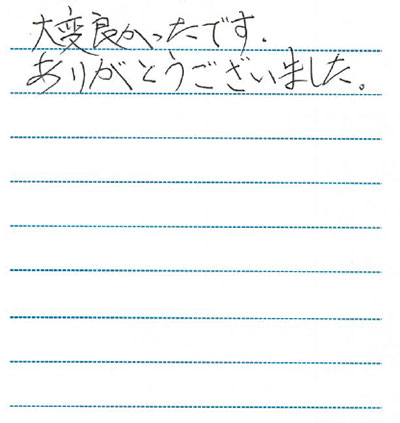 大変良かったです.
ありがとうございました。